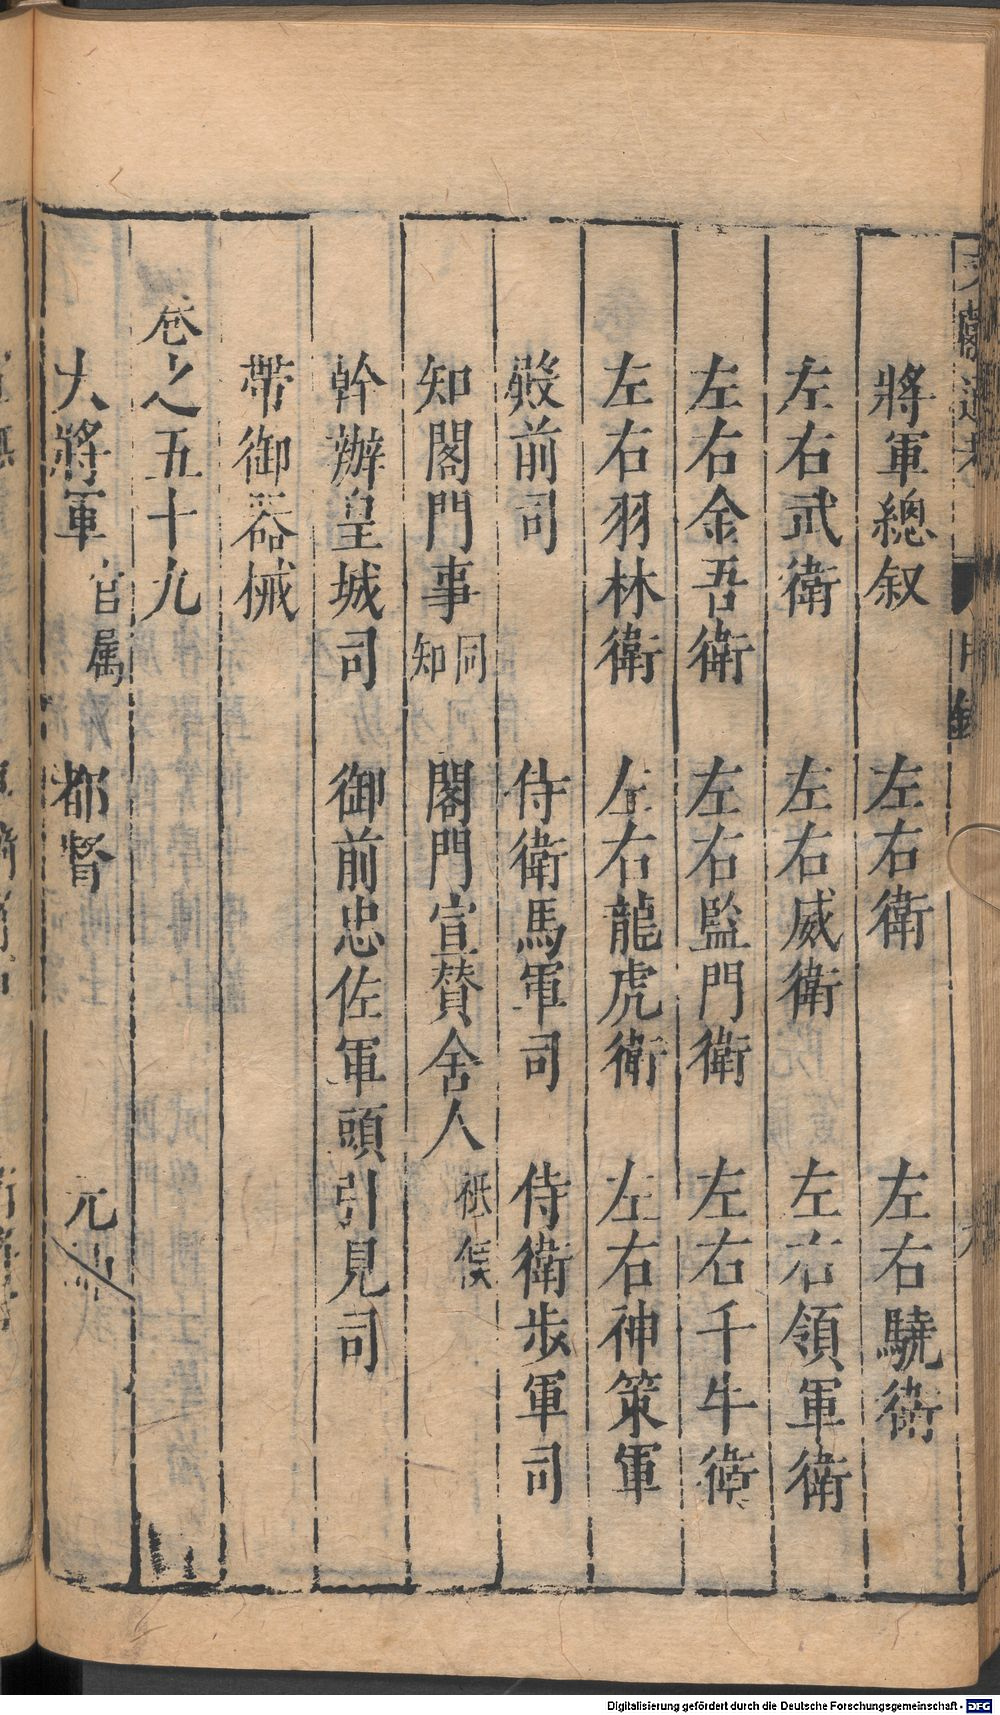 將軍總叙 左右衛 左右驍衛
左右武衛 左右威衛 左右領軍衛
左右金吾衛 左右監門衛 左右千牛衛
左右羽林衛 左右龍虎衛 左右神策軍
殿前司 侍衛馬軍司 侍衛步軍司
知閣門事同知 閣門宣贊舍人祗候
幹辦皇城司 御前忠佐軍頭引見司
帶御器械
卷之五十九
大將軍官属 都督 元
Digitalisierung gefördert durch die Deutsche Forschungsgemeinschaft - DFG